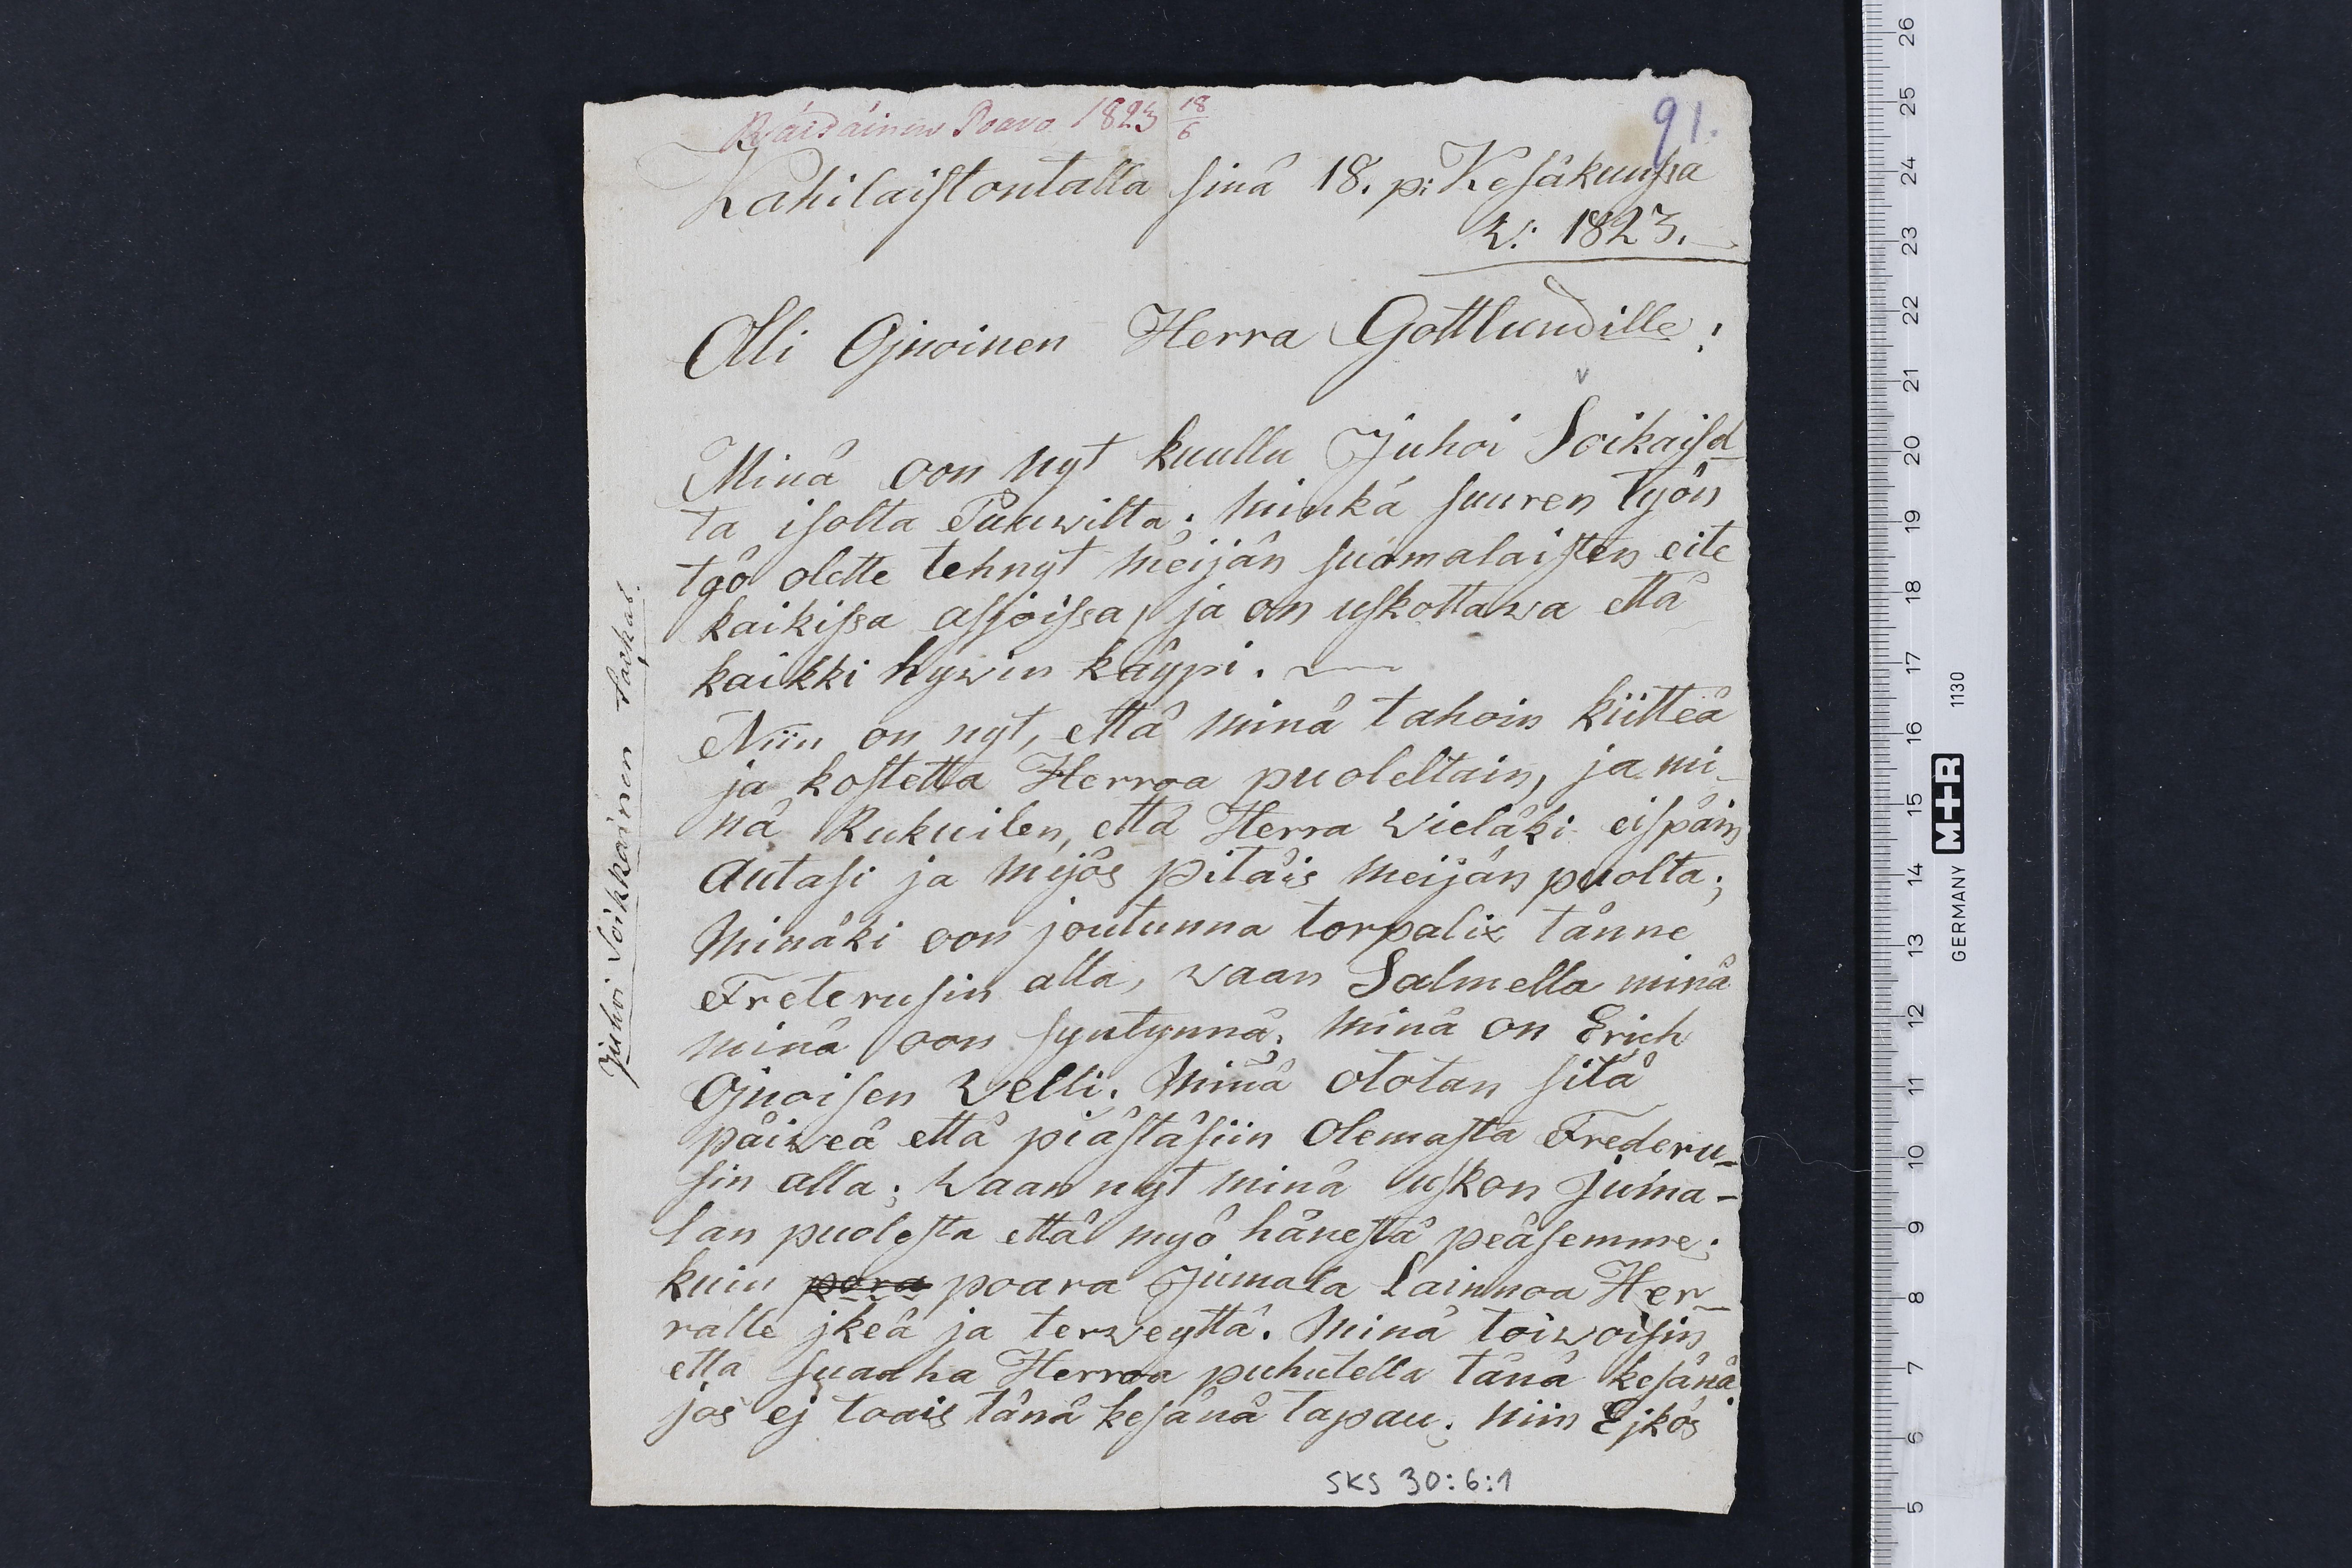 Räisäinen Poavo 1823 18/6
91.
Kahilaistontalla sinä 18. p: Kesäkuussa
w: 1823.
Olli Ojnoinen Herra Gottlundille!
Minä oon nyt kuullu Juhoi Soikaisel
ta isolta Puuwilta; minkä suuren työn
työ olette tehnyt meijän suomalaisten eite
kaikissa assjoissa, ja on uskottawa että
kaikki hywin käypi.
Niin on nyt, että minä tahoin kiitteä
ja kostetta Herroa puoleltain, ja mi-
nä Rukuilen, että Herra wieläki eispäin
autasi ja myös pitäis meijän puolta;
Minäki oon joutunna torpalix tänne
Freterusin alla, waan Salmella minä
minä oon syntynnä; minä on Erich
Ojnoisen welli. Minä ototan sitä
päiweä että piästäsiin olemasta Frederu-
sin alla; waan nyt minä uskon Juma-
lan puolesta että myö hänestä peäsemme;
kuin pora poara Jumala lainnoa Her-
ralle jkeä ja terweyttä. Minä toiwoisin
että suaaha Herroa puhutella tänä kesänä
jos ej toais tänä kesänä tapau; niin Ejkös
Juhoi Soikkainen tackas.
SKS 30:6:1
26
25
24
23
22
21
20
19
18
17
16
15
14
13
12
11
10
9
8
7
6
5
GERMANY M+R 1130